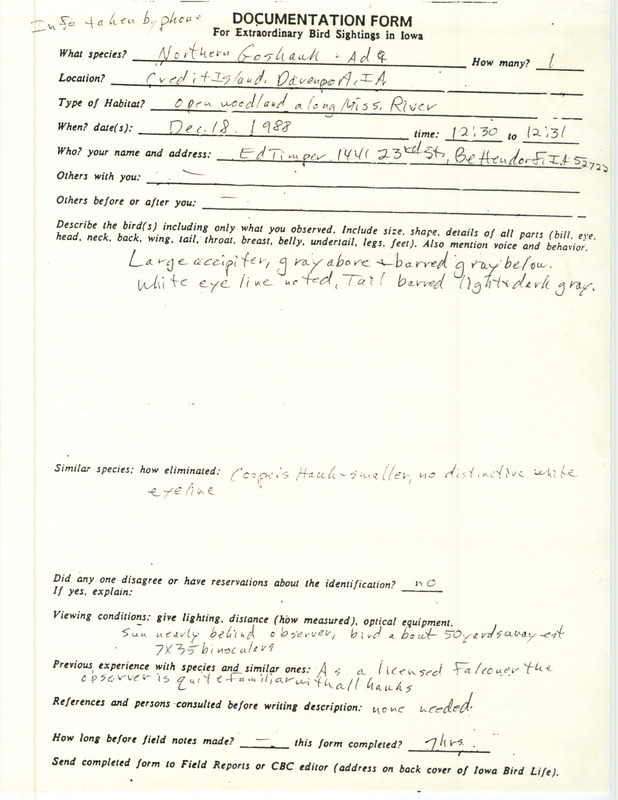 Info taken by phone
DOCUMENTATION FORM
For Extraordinary Bird Sightings in Iowa
What species? Northern Goshawk - Ad ♀ How many? 1
Location? Credit Island, Davenport, IA
Type of Habitat? open woodland along Miss. River
When? date(s): Dec. 18, 1988 time: 12:30 to 12:31
Who? your name and address: Ed Timper 1441 23rd St, Bettendorf, IA 52722
Others with you: —
Others before or after you: —
Describe the bird(s) including only what you observed. Include size, shape, details of all parts (bill, eye,
head, neck, back, wing, tail, throat, breast, belly, undertail, legs, feet). Also mention voice and behavior.
Large accipiter, gray above + barred gray below.
White eye line noted, Tail barred light + dark gray.
Similar species: how eliminated: Cooper's Hawk - smaller, no distinctive white
eyeline
Did any one disagree or have reservations about the identification? no
If yes, explain:
Viewing conditions: give lighting, distance (how measured), optical equipment.
Sun nearly behind observer, bird about 50 yards away est
7X35 binoculars
Previous experience with species and similar ones: As a licensed Falconer the
observer is quite familiar with all hawks
References and persons consulted before writing description: none needed.
How long before field notes made? — this form completed? 7hrs.
Send completed form to Field Reports or CBC editor (address on back cover of Iowa Bird Life).